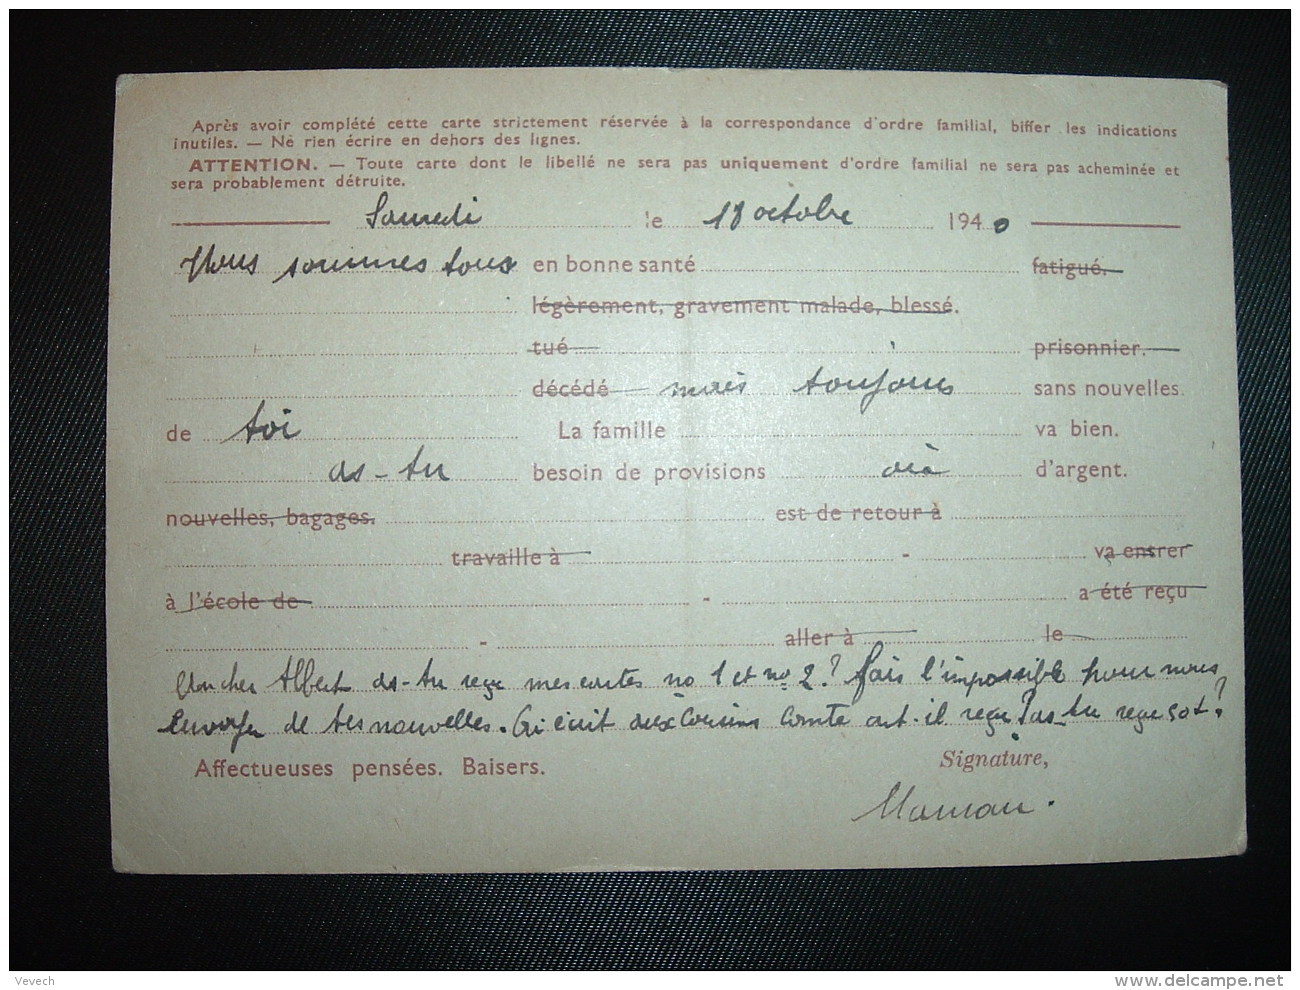 Après avoir complété cette carte strictement réservée à la correspondance d'ordre familial, biffer les indications
inutiles. — Ne rien écrire en dehors des lignes.
ATTENTION. — Toute carte dont le libellé ne sera pas uniquement d'ordre familial ne sera pas acheminée et
sera probablement détruite.
Samedi le 18 octobre 1940
Nous sommes tous en bonne santé fatigué.
légèrement, gravement malade, blessé.
tué prisonnier.
décédé mais toujours sans nouvelles.
de toi La famille va bien.
as-tu besoin de provisions d'argent.
nouvelles, bagages. est de retour à
travaille à - va entrer
à l'école de - a été reçu
- aller à le
Mon cher Albert as-tu reçu mes cartes no 1 et no 2? fais l'impossible pour nous
envoyer de tes nouvelles. écrit aux Cousins Comte ont-il reçu? as-tu reçu
Affectueuses pensées. Baisers. Signature,
Maman.
Vevech
www.delcampe.net